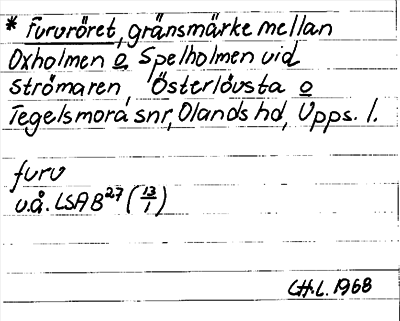 * Fururöret, gränsmärke mellan
Oxholmen o Spelholmen vid
Strömaren, Österlövsta o
Tegelsmora snr, Olands hd, Upps. l.
furu
u.å. LSA B27 (13/1)
CH.L. 1968